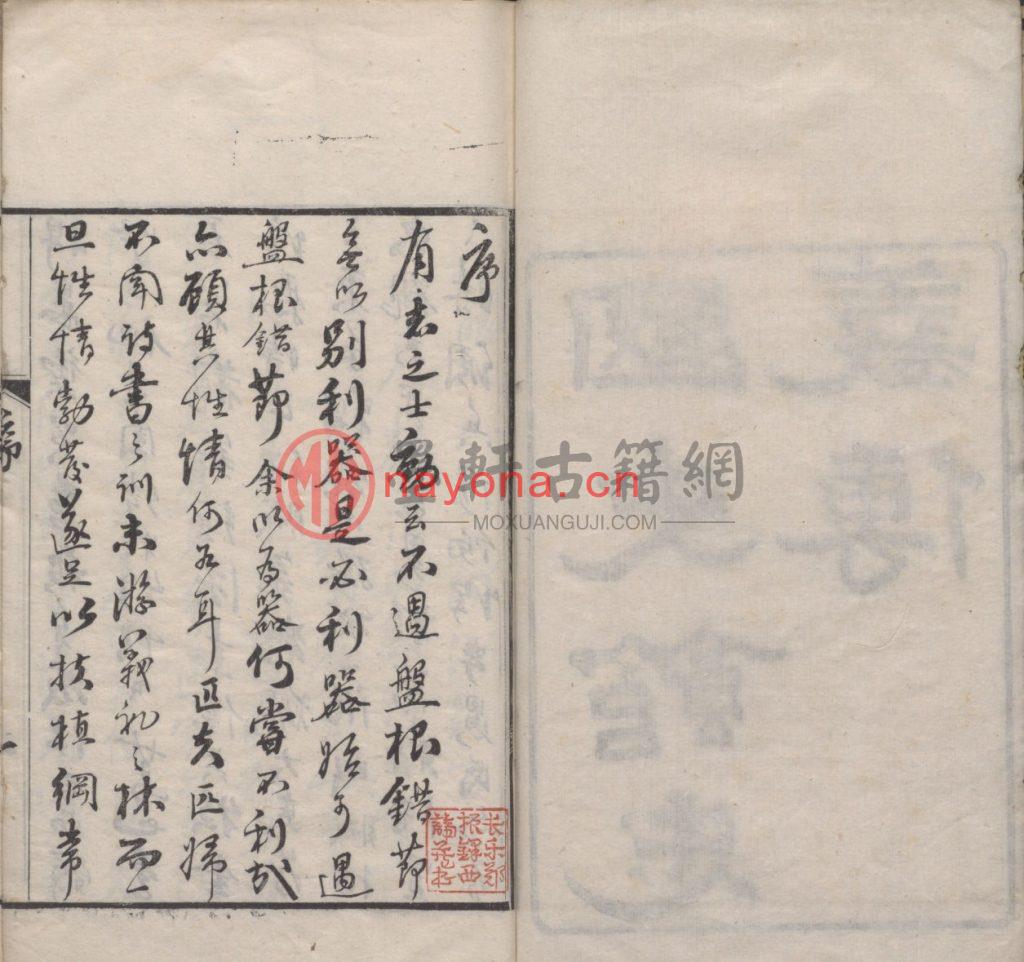 序
有志之士動云不遇盤根錯節
無以別利器是必利器始可遇
盤根錯節余以為器何嘗不利哉
亦顧其性情何若耳匹夫匹婦
不聞詩書之訓未游義礼之林而一
旦性情勃發遂足以扶植綱常
序
一
長樂鄭
振鐸西
諦藏書
墨軒古籍網
nayona.cn
MOXUANGUJI.COM